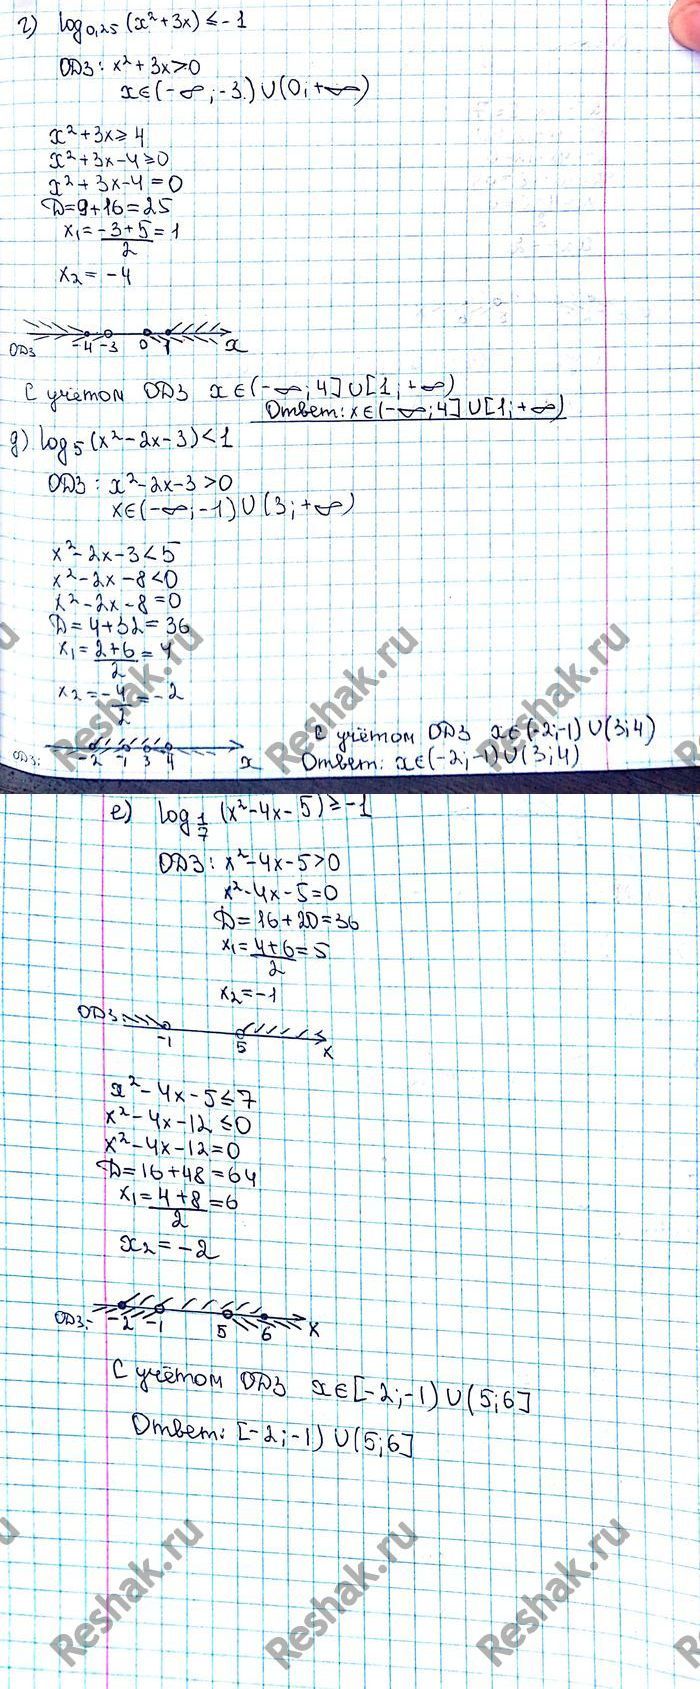 г) log₀,₂₅ (x² + 3x) ≤ -1
ОДЗ: x² + 3x > 0
x∈(-∞; -3) ∪ (0; +∞)
x² + 3x ≥ 4
x² + 3x - 4 ≥ 0
x² + 3x - 4 = 0
D = 9 + 16 = 25
x₁ = (-3 + 5)/2 = 1
x₂ = -4
ОДЗ -4 -3 0 1 x
С учётом ОДЗ x∈(-∞; 4] ∪ [1; +∞)
Ответ: x∈(-∞; 4] ∪ [1; +∞)
д) log₅ (x² - 2x - 3) < 1
ОДЗ: x² - 2x - 3 > 0
x∈(-∞; -1) ∪ (3; +∞)
x² - 2x - 3 < 5
x² - 2x - 8 < 0
x² - 2x - 8 = 0
D = 4 + 32 = 36
x₁ = (2 + 6)/2 = 4
x₂ = -4/2 = -2
ОДЗ: -2 -1 3 4 x
С учётом ОДЗ x∈(-2; -1) ∪ (3; 4)
Ответ: x∈(-2; -1) ∪ (3; 4)
е) log₁/₇ (x² - 4x - 5) ≥ -1
ОДЗ: x² - 4x - 5 > 0
x² - 4x - 5 = 0
D = 16 + 20 = 36
x₁ = (4 + 6)/2 = 5
x₂ = -1
ОДЗ -1 5 x
x² - 4x - 5 ≤ 7
x² - 4x - 12 ≤ 0
x² - 4x - 12 = 0
D = 16 + 48 = 64
x₁ = (4 + 8)/2 = 6
x₂ = -2
ОДЗ: -2 -1 5 6 x
С учётом ОДЗ x∈[-2; -1) ∪ (5; 6]
Ответ: [-2; -1) ∪ (5; 6]
Reshak.ru
Reshak.ru
Reshak.ru
Reshak.ru
Reshak.ru
Reshak.ru